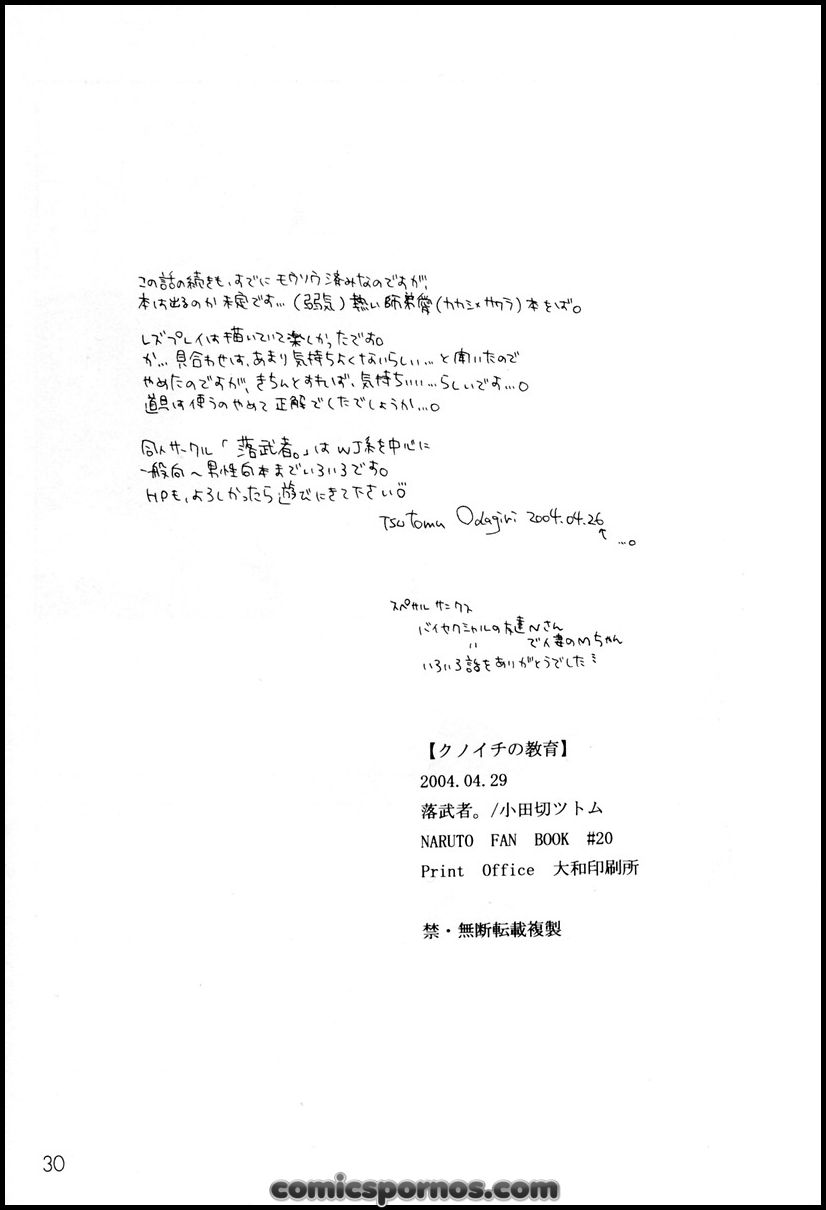 この話の続きも、すでに モウソウ済みなのですが、
本は出るのか未定です…(弱気)熱い師弟愛(カカシ×サクラ)本をば。
レズプレイは描いていて楽しかったです。
が…見合わせは、あまり気持ちよくないらしい…と聞いたので
やめたのですが、きちんとすれば、気持ちいい…らしいです…。
道具は使うのやめて正解でしたでしょうか…。
同人サークル「落武者。」はWJ系を中心に
一般向〜男性向本までいろいろです。
HPも、よろしかったら遊びにきて下さい
Tsutomu Odagiri 2004.04.26
↑
…。
スペサル サンクス
バイセクシャルの友達Nさん
〃 で人妻のMちゃん
いろいろ話をありがとうでした
【クノイチの教育】
2004.04.29
落武者。/小田切ツトム
NARUTO FAN BOOK #20
Print Office 大和印刷所
禁・無断転載複製
30
comicspornos.com